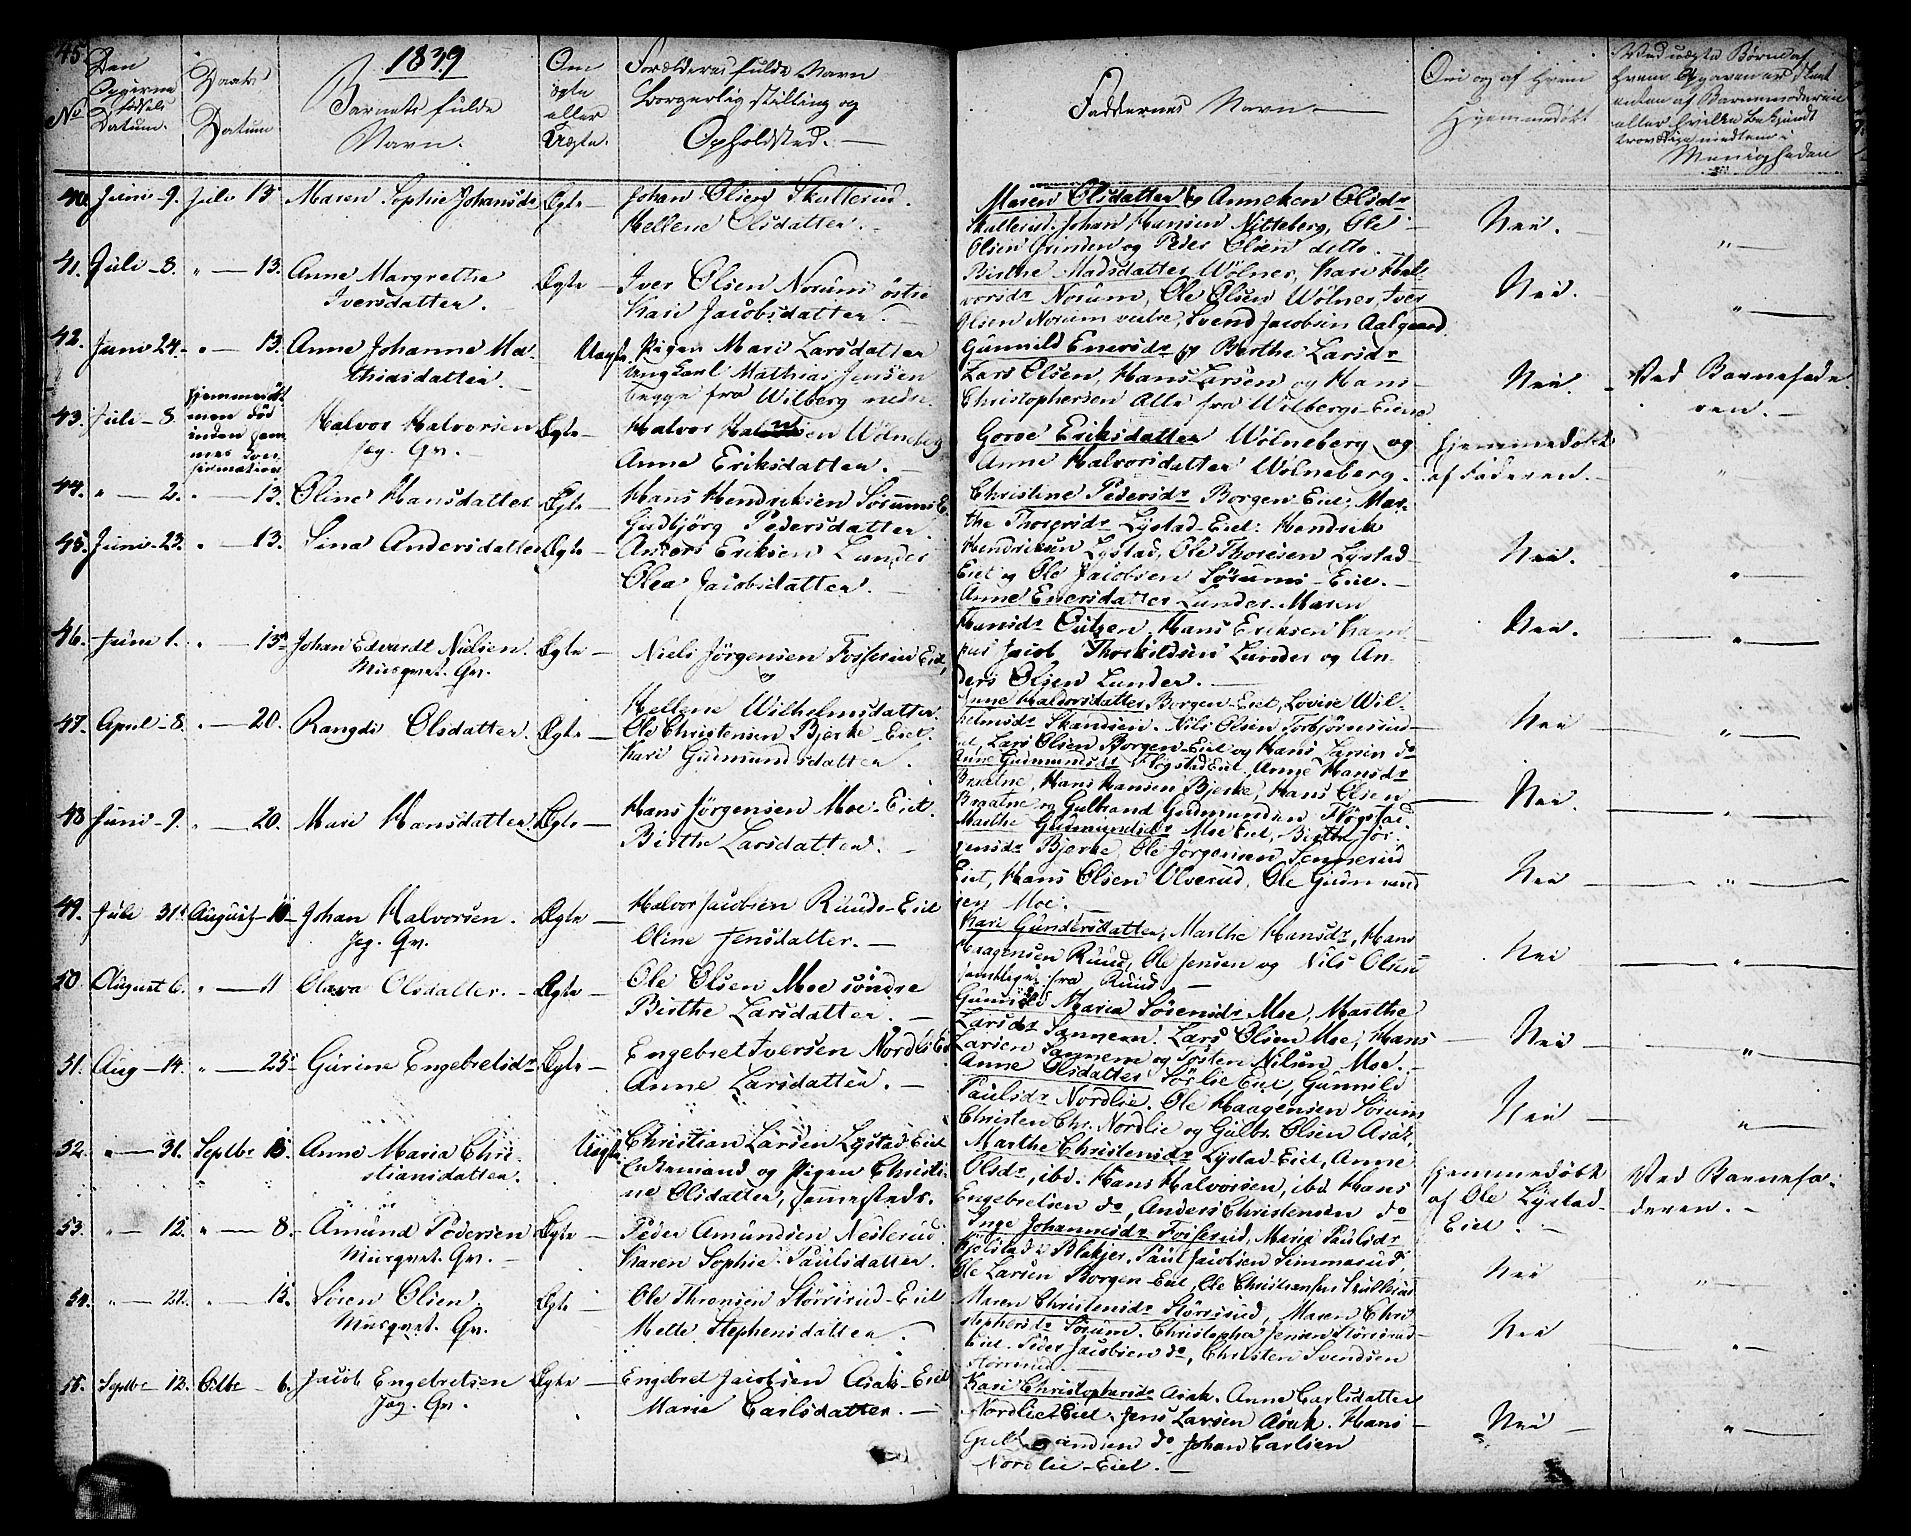 45.
1839
No
Den Opgivne Fødsels Datum.
Daabs Datum
Barnets fulde Navn.
Om ægte eller Uægte.
Forældrenes fulde Navn Borgerlig stilling og Opholdsted. —
Faddernes Navn. —
Om og af Hvem Hjemmedøbt
Ved uægte Børn af hvem Opgaven er skeet enten af Barnemoderen eller hvilke bekjendt troværdige medlem i Menigheden
40. Juni 9. Juli 13 Maren Sophie Johansdr Ægte — Johan Olsen Skullerud.
Hellene Olsdatter. —
Maren Olsdatter og Anneken Olsdr
Skullerud. Johan Hansen Nitteberg, Ole
Olsen Grinden og Peder Olsen ditto. —
Nei. — „ —
41. Juli 8. „ — 13. Anne Margrethe
Iversdatter. —
Ægte — Iver Olsen Norum østre
Kari Jacobsdatter. —
Birthe Madsdatter Wølner, Kari Hal-
vorsdr Norum, Ole Olsen Wølner, Iver
Olsen Norum vestre, Svend Jacobsen Aalgaard.
Nei. — „ —
42. Juni 24. „ — 13. Anne Johanne Ma-
thiasdatter. —
Uægte. Pigen Mari Larsdatter
Ungkarl Mathias Jensen
begge fra Wilberg nedre.
Gunnild Enersdr og Berthe Larsdr
Lars Olsen, Hans Larsen og Hans
Christophersen Alle fra Wilbergs-Eiene
Nei. — Ved Barnefade-
ren. —
43. Juli 8. Hjemmedøbt
men død
inden hen
mes Con-
firmation
Halvor Halvorsen
Jag. Gv. —
Ægte — Halvor Halvorsen Wølneberg
Anne Eriksdatter. —
Goroe Eriksdatter Wølneberg og
Anne Halvorsdatter Wølneberg.
Hjemmedøbt
af Faderen. —
44. „ — 2. „ — 13. Oline Hansdatter Ægte — Hans Hendriksen Sørums E.
Gudbjörg Pedersdatter.
Christine Pedersdr Borgen-Eiet, Mar-
the Thoresdr Lystad-Eiet: Hendrik
Hendriksen Lystad, Ole Thoresen Lystad-
Eiet og Ole Jacobsen Sørums-Eiet. —
Nei. — „ —
45. Juni 23. „ — 13. Lina Andersdatter Ægte — Anders Eriksen Lunder
Olea Jacobsdatter. —
Anne Enersdatter Lunder. Maren
Hansdr Outzen, Hans Eriksen Kam-
pus Jacob Thorkildsen Lunder og An-
ders Olsen Lunder. —
Nei. — „ —
46. Juni 1. „ — 15 Johan Edvardt Nielsen.
Musqvet. Gv.
Ægte — Niels Jörgensen Fosserud Eiet,
Hellene Wilhelmsdatter.
Anne Haldorsdatter Borgen-Eiet, Lovise Wil-
helmsdr Skandsen. Nils Olsen Torbjörnsrud-
Eiet, Lars Olsen Borgen-Eiet og Hans Larsen do
Nei — „ —
47. April 8. „ — 20. Rangdi Olsdatter. Ægte — Ole Christensen Bjerke-Eiet.
Kari Gudmundsdatter.
Anne Gudmundsdr Flogstad Eiet. Anne Hansdr
Braatne, Hans Hansen Bjerke, Hans Olsen
Braatne og Gulbrand Gudmundsen Flogstad.
— Nei. — „ —
48 Juni 9. „ — 20. Mari Hansdatter. Ægte — Hans Jörgensen Moe-Eiet.
Birthe Larsdatter. —
Marthe Gudmundsdr Moe Eiet, Birthe Jör-
gensdr Bjerke Ole Jörgensen Semmerud
Eiet, Hans Olsen Ulverud, Ole Gudmund
sen Moe. —
Nei — „ —
49. Juli 31. August 10 Johan Halvorsen.
Jag. Gv.
Ægte — Halvor Jacobsen Ruuds-Eiet
Oline Jensdatter. —
Kari Gundersdatter, Marthe Hansdr, Hans
Haagensen Ruud, Ole Jensen og Nils Olsen
samtlige fra Ruud. —
Nei — „ —
50 August 6. „ — 11 Olava Olsdatter. — Ægte — Ole Olsen Moe söndre
Birthe Larsdatter. —
Gunnild Maria Sørensdr Moe, Marthe
Larsdr Sannem. Lars Olsen Moe, Hans
Larsen Sannem og Tosten Nilsen Moe. —
Nei — „ —
51. Aug — 14. „ — 25 Gurine Engebretsdr Ægte — Engebret Iversen Nordli Ei
Anne Larsdatter. —
Anne Olsdatter Sørlie Eiet, Gunnild
Paulsdr Nordlie. Ole Haagensen Sørum
Christen Chr. Nordlie og Gulbr. Olsen Asak.
Nei — „ —
52. „ — 31. Septbr 15. Anne Maria Chri-
stiansdatter.
Uægte. Christian Larsen Lystad-Eiet
Enkemand og Pigen Christi-
ne Olsdatter, sammesteds.
Marthe Christensdr Lystad-Eiet, Anne
Olsdr, ibd. Hans Halvorsen, ibd Hans
Engebretsen do, Anders Christensen do
Hjemmedøbt
af Ole Lystad-
Eiet. —
Ved Barnefa-
deren. —
53. „ — 12. „ — 8. Amund Pedersen
Musqvet. Gv. —
Ægte — Peder Amundsen Neslerud
Karen Sophie Paulsdatter.
Inge Johannesdr Fosserud, Maria Paulsdr
Kjølstad i Blakjer, Paul Jacobsen Simmerud,
Ole Larsen Borgen-Eiet, Ole Christiansen Skullerud
Nei — „ —
54. „ — 22. „ — 15. Sören Olsen.
Musqvet. Gv.
Ægte — Ole Thronsen Störrsrud-Eiet
Mette Stephensdatter.
Maren Christensdr Störrsrud, Maren Chri
stophersdr Sørum. Christopher Jensen Störrsrud-
Eiet. Peder Jacobsen do, Christen Svendsen
Störrsrud. —
Nei — „ —
55. Septbr 12. Octbr — 6. Jacob Engebretsen
Jag. Gv.
Ægte — Engebret Jacobsen Asaks-Eiet
Marie Carlsdatter. —
Kari Christophersdr Asak. Anne Carlsdatter
Nordlie-Eiet. Jens Larsen Asak. Hans
Gulbrandsen do Johan Carlsen
Nordlie-Eiet. —
Nei — „ —